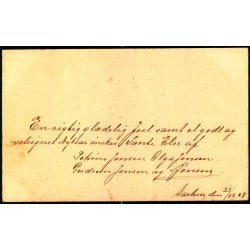 En rigtig glædelig Juul samt et godt og
velsignet Nytaar ønskes Tante Else af
Petrine Jensen Olga Jensen
Gudrun Jensen og Jensen
Aarhus, den 23/12 24